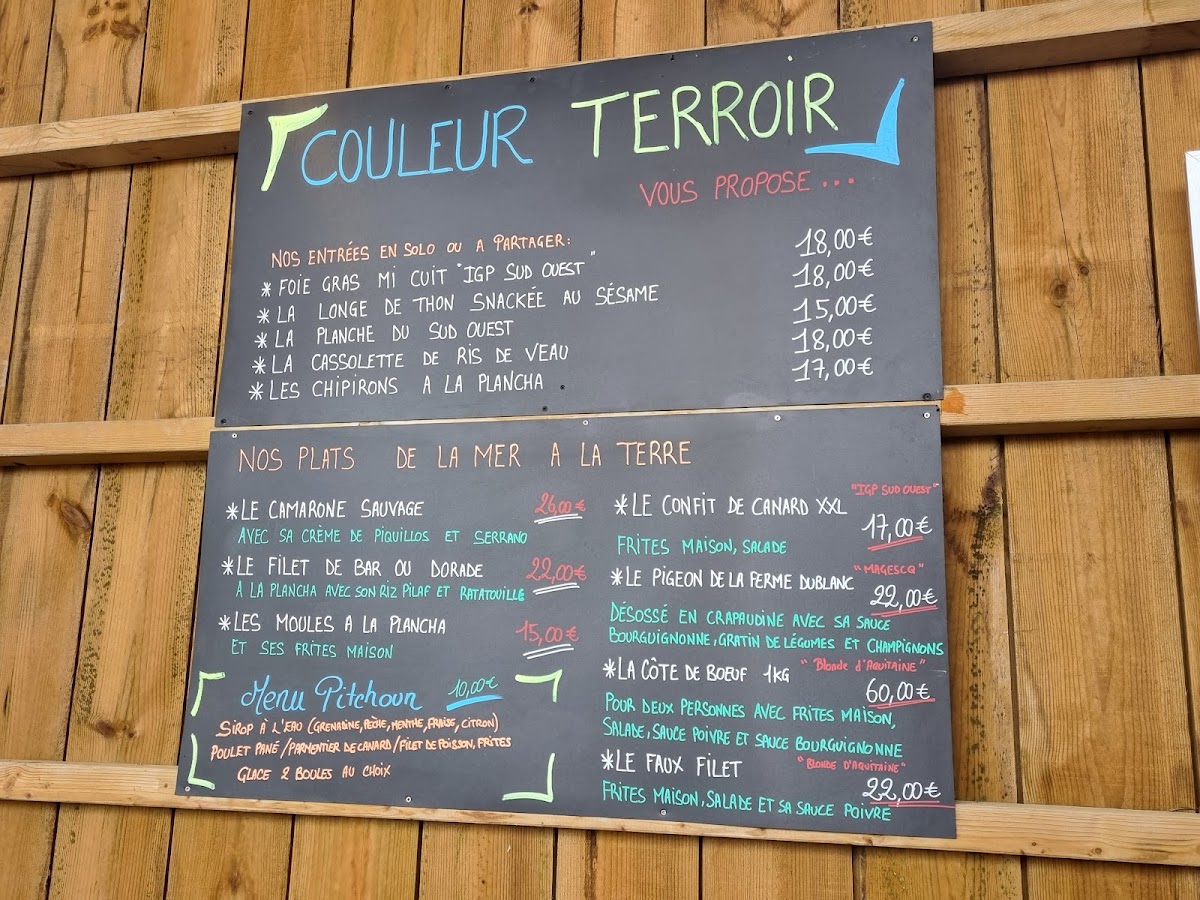 COULEUR TERROIR
VOUS PROPOSE ...
NOS ENTRÉES EN SOLO OU A PARTAGER:
* FOIE GRAS MI CUIT "IGP SUD OUEST" 18,00€
* LA LONGE DE THON SNACKÉE AU SÉSAME 18,00€
* LA PLANCHE DU SUD OUEST 15,00€
* LA CASSOLETTE DE RIS DE VEAU 18,00€
* LES CHIPIRONS A LA PLANCHA 17,00€
NOS PLATS DE LA MER A LA TERRE
* LE CAMARONE SAUVAGE 26,00€
AVEC SA CRÈME DE PIQUILLOS ET SERRANO
* LE FILET DE BAR OU DORADE 22,00€
A LA PLANCHA AVEC SON RIZ PILAF ET RATATOUILLE
* LES MOULES A LA PLANCHA 15,00€
ET SES FRITES MAISON
Menu Pitchoun 10,00€
SIROP À L'EAU (GRENADINE, PÈCHE, MENTHE, FRAISE, CITRON)
POULET PANÉ / PARMENTIER DE CANARD / FILET DE POISSON, FRITES
GLACE 2 BOULES AU CHOIX
* LE CONFIT DE CANARD XXL "IGP SUD OUEST"
17,00€
FRITES MAISON, SALADE
* LE PIGEON DE LA FERME DUBLANC "MAGESCQ"
22,00€
DÉSOSSÉ EN CRAPAUDINE AVEC SA SAUCE
BOURGUIGNONNE, GRATIN DE LÉGUMES ET CHAMPIGNONS
* LA CÔTE DE BOEUF 1KG "Blonde d'Aquitaine"
60,00€
POUR DEUX PERSONNES AVEC FRITES MAISON,
SALADE, SAUCE POIVRE ET SAUCE BOURGUIGNONNE
* LE FAUX FILET "BLONDE D'AQUITAINE"
22,00€
FRITES MAISON, SALADE ET SA SAUCE POIVRE